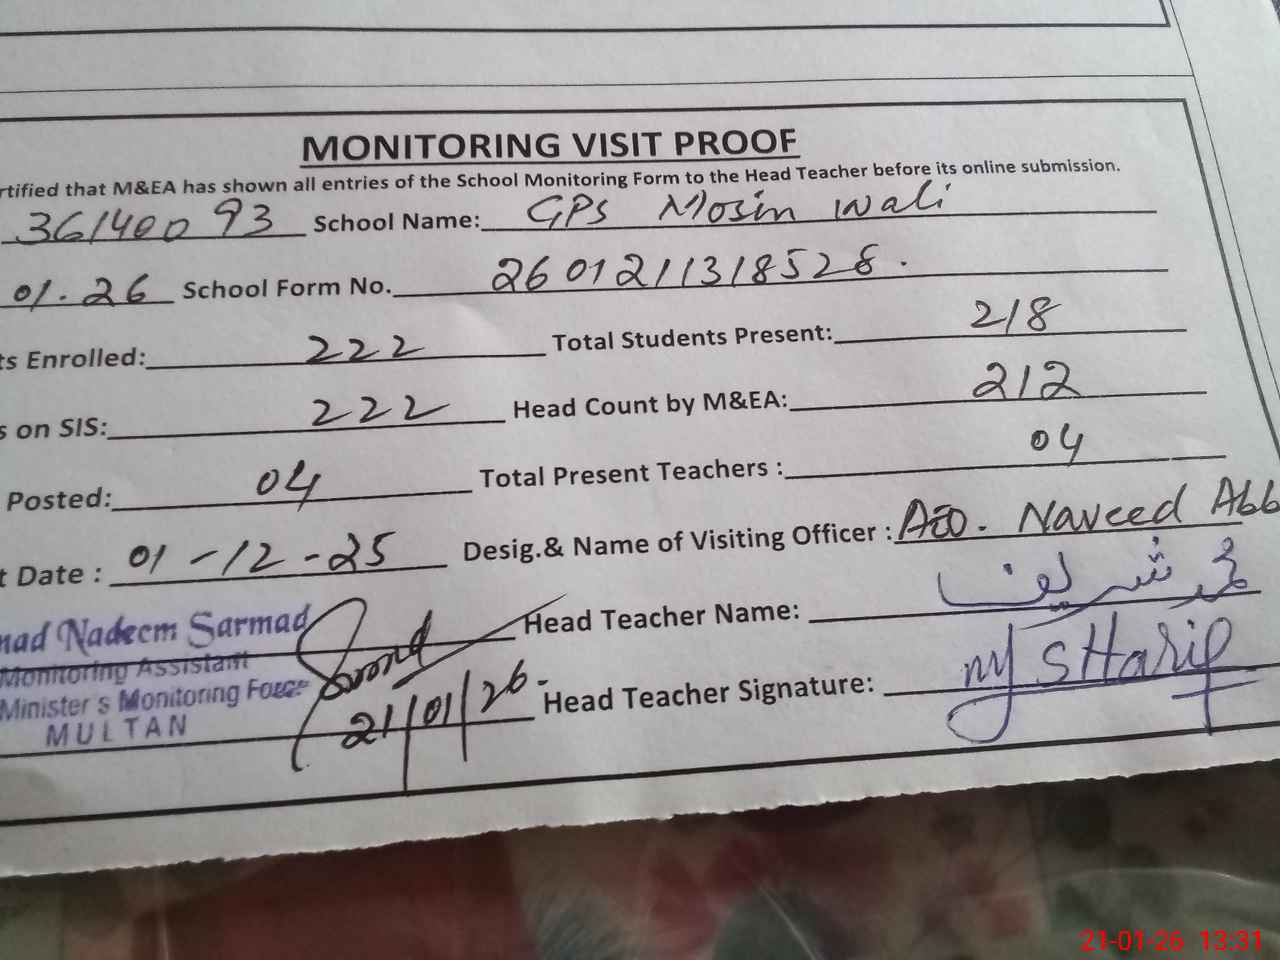 MONITORING VISIT PROOF
rtified that M&EA has shown all entries of the School Monitoring Form to the Head Teacher before its online submission.
36140093 School Name: GPS Mosin wali
01.26 School Form No. 2601211318528.
ts Enrolled: 222 Total Students Present: 218
s on SIS: 222 Head Count by M&EA: 212
Posted: 04 Total Present Teachers : 04
t Date : 01-12-25 Desig.& Name of Visiting Officer : AEO. Naveed Abb
mad Nadeem Sarmad Head Teacher Name: محمد شریف
Monitoring Assistant
Minister's Monitoring Force
MULTAN
21/01/26. Head Teacher Signature: M SHARIF
21-01-26 13:31